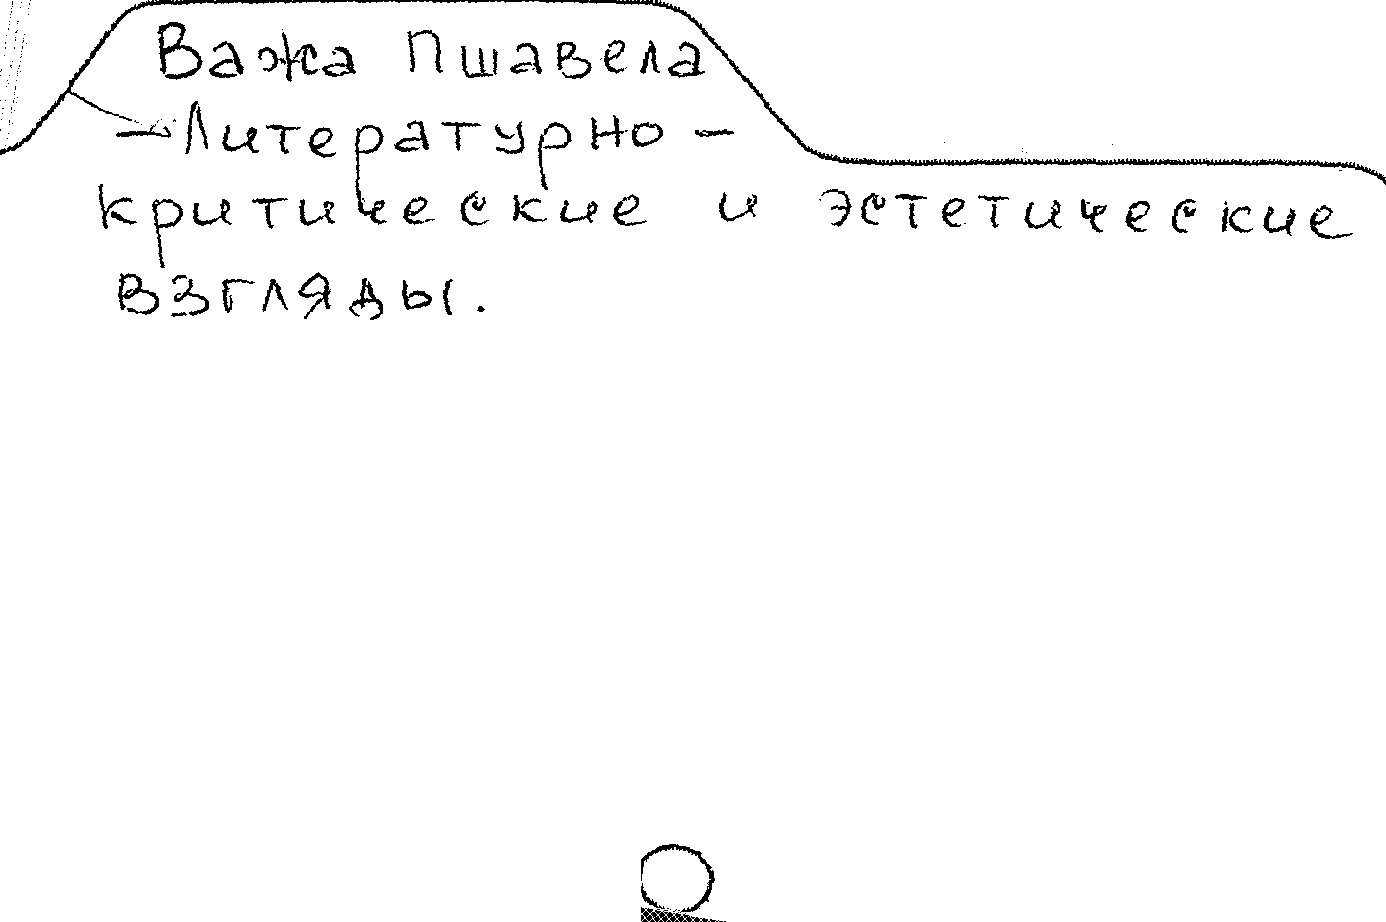 Важа Пшавела
— Литературно —
критические и эстетические
взгляды.